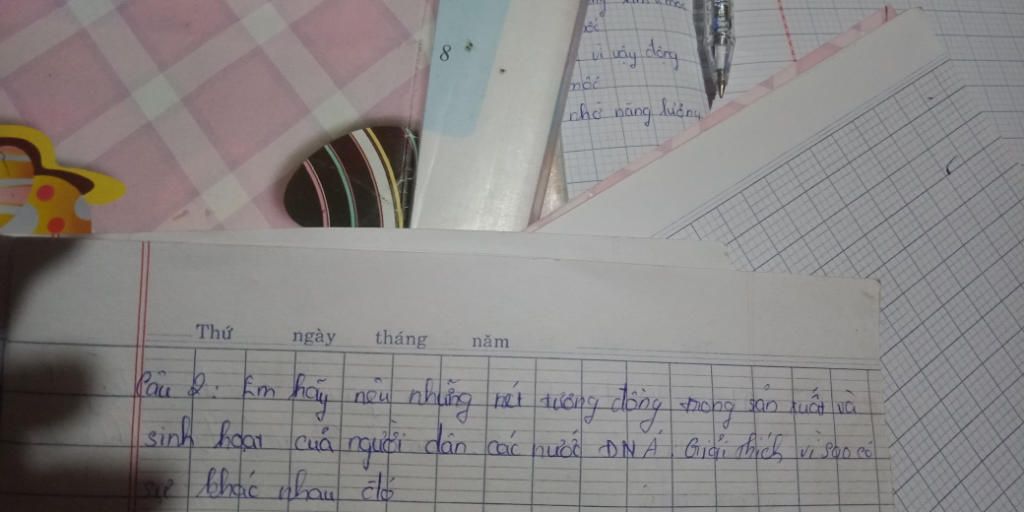 8
vì vậy đông
nhờ năng lượng
Thứ ngày tháng năm
Câu 2: Em hãy nêu những nét tương đồng trong sản xuất và
sinh hoạt cuả người dân các nước ĐNÁ. Giải thích vì sao có
sự khác nhau đó